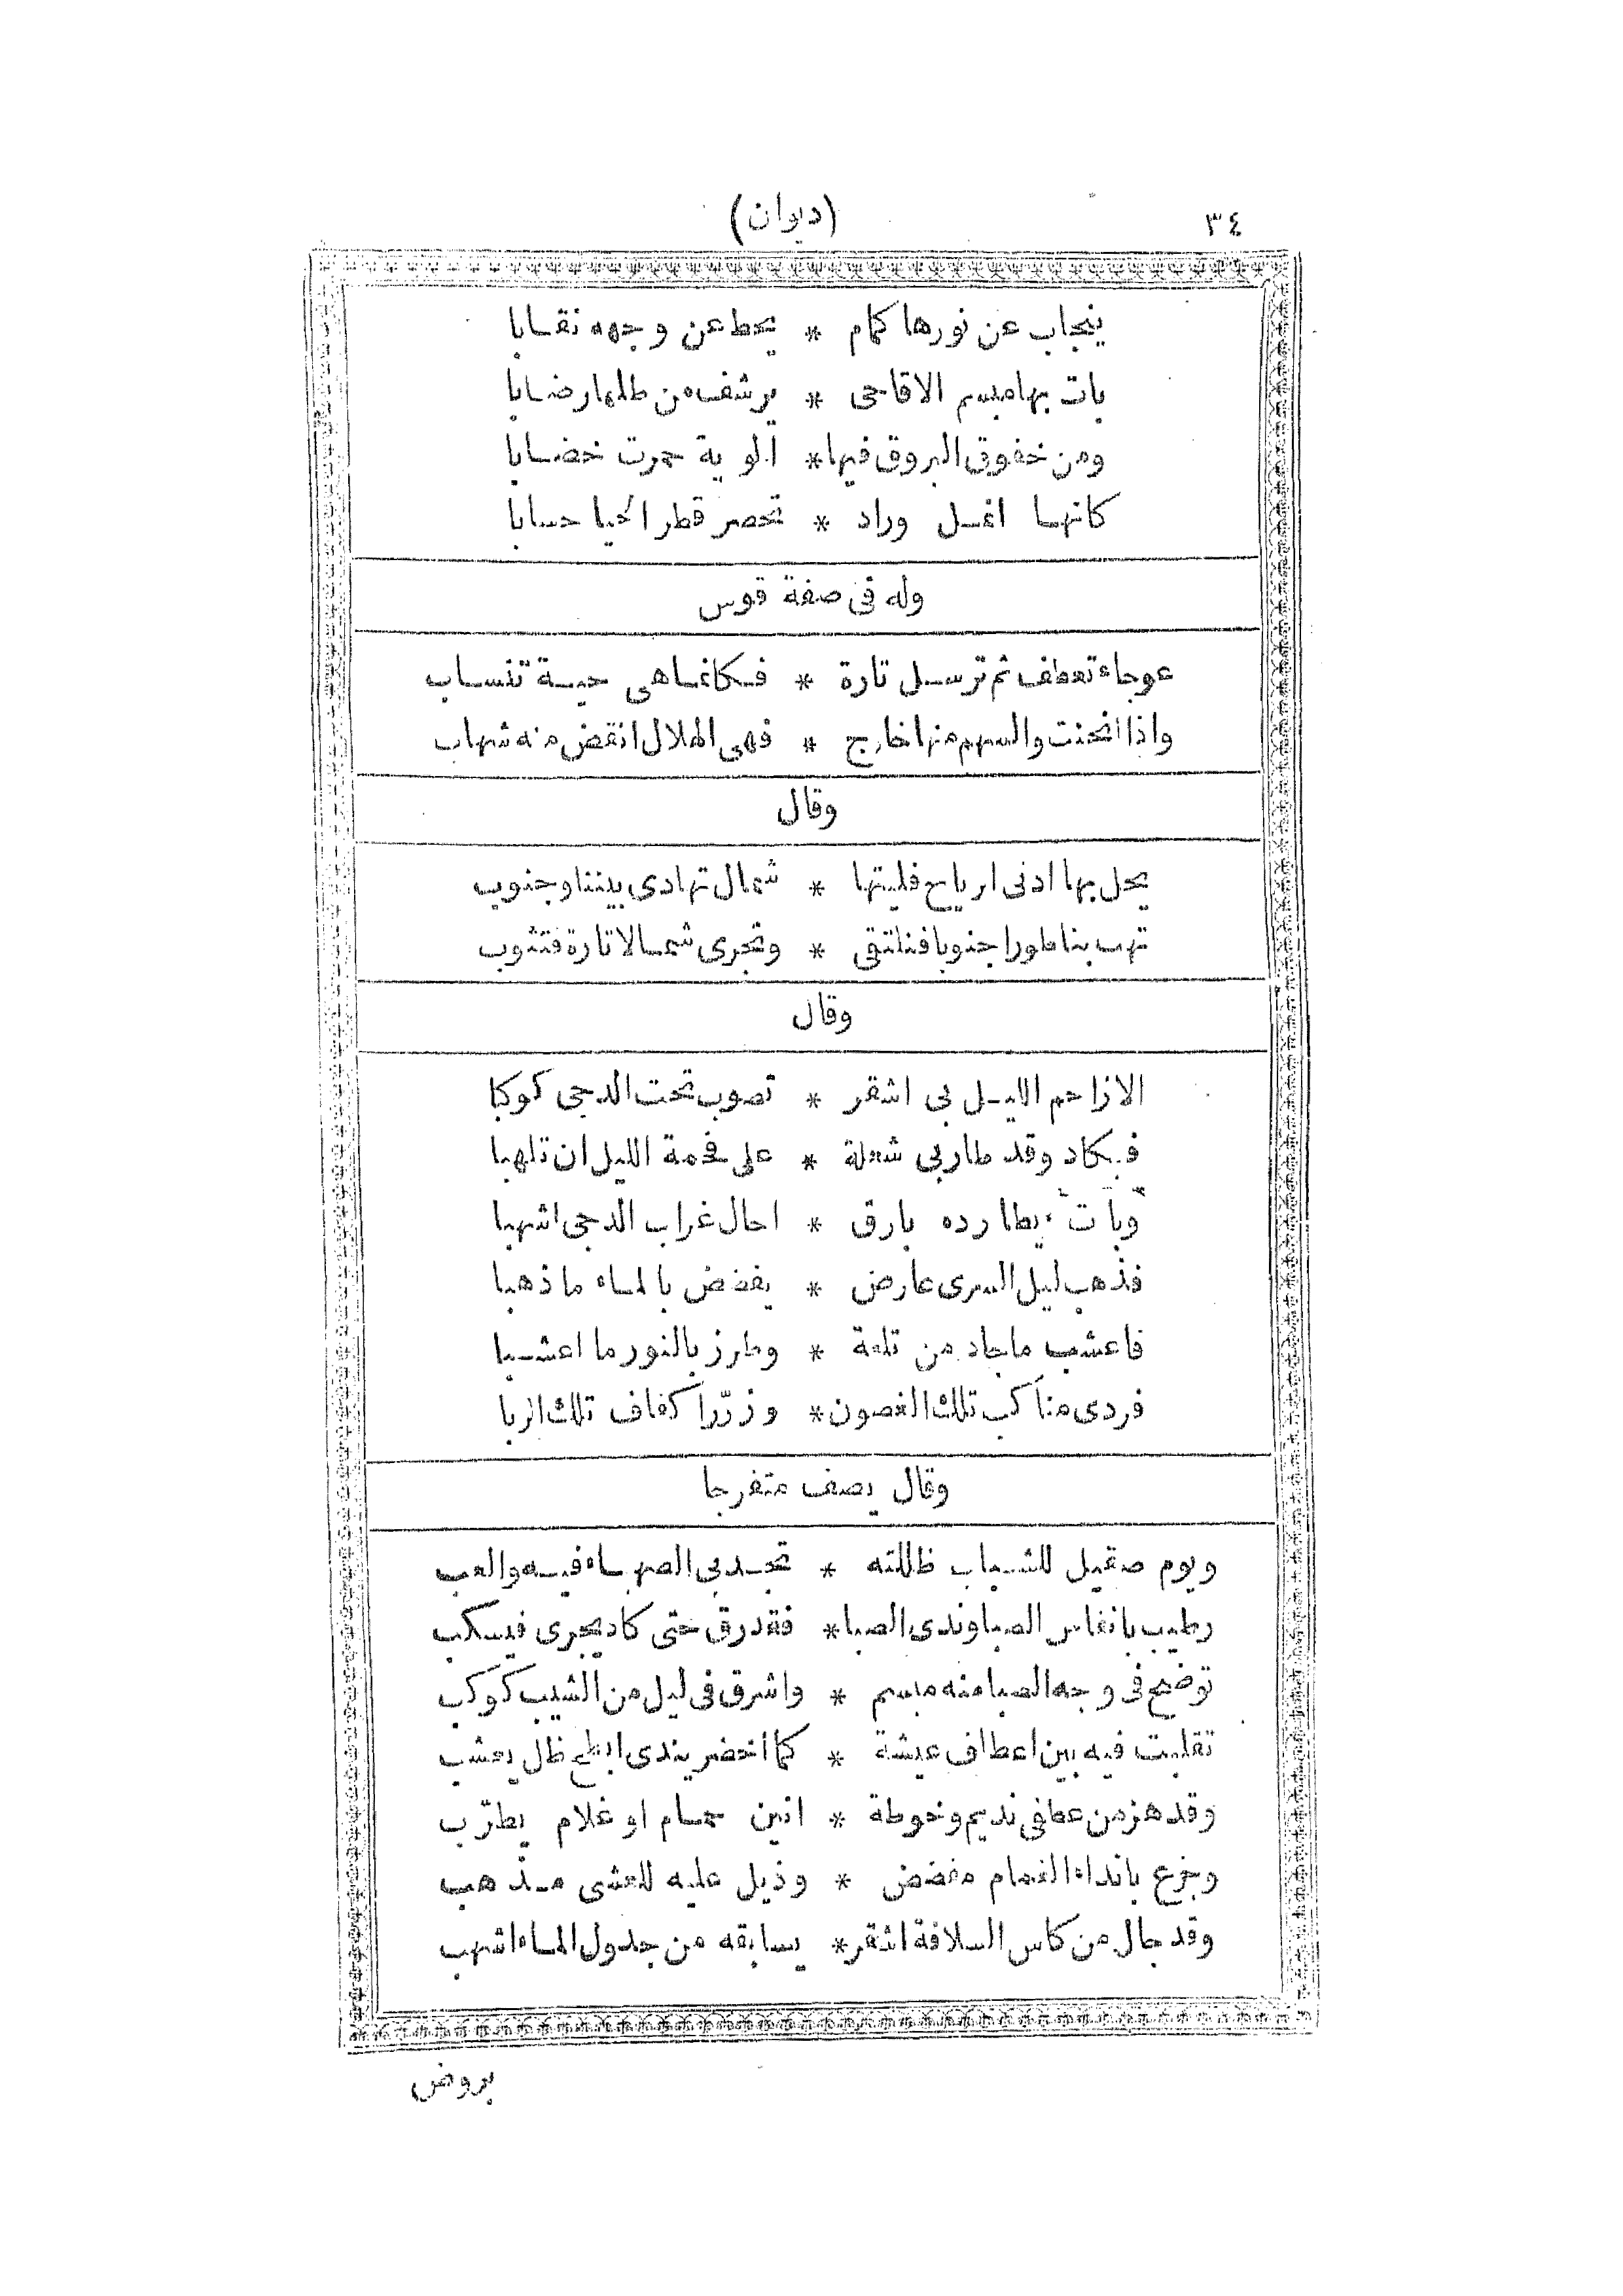 ٣٤
(ديوان)
ينجاب عن نورها كمام * يحط عن وجهه نقابا
بات بها مبسم الاقاحى * يرشف من طلها رضابا
ومن خفوق البروق فيها * الوية حمرت خضابا
كانها انمل وراد * تحصر قطر الحيا حسابا
وله فى صفة قوس
عوجاء تعطف ثم ترسل تارة * فكانما هى حية تنساب
واذا انحنت والسهم منها خارج * فهى الهلال انقض منه شهاب
وقال
يحل بها ادنى ارياح فليتها * شمال تهادى بيننا وجنوب
تهب بنا طورا جنوبا فنلتقى * وتجرى شمالا تارة فتثوب
وقال
الا زاحم الليل بى اشقر * تصوب تحت الدجى كوكبا
فيكاد وقد طار بى شعلة * على فحمة الليل ان تلهبا
وبات يطارده بارق * احال غراب الدجى اشهبا
فذهب ليل السرى عارض * يفضض بالماء ما ذهبا
فاعشب ما جاد من تلعة * وطرز بالنور ما اعشبا
فردى مناكب تلك الغصون * وزرّرا كفاف تلك الربا
وقال يصف متفرجا
ويوم صقيل للشباب ظللته * تجد بى الصهباء فيه والعب
رطيب بانفاس الصبا وندى الصبا * فقد رق حتى كاد يجرى فيسكب
توضح فى وجه الصبا منه مبسم * واشرق فى ليل من الشيب كوكب
تقلبت فيه بين اعطاف عيشة * كما اخضر يندى ابطح ظل يعشب
وقد هز من عطفى نديم وخوطة * انين حمام او غلام يطرّب
وجزع بانداء الغمام مفضض * وذيل عليه للعشى مذهب
وقد جال من كاس السلافة اشقر * يسابقه من جدول الماء اشهب
بروض